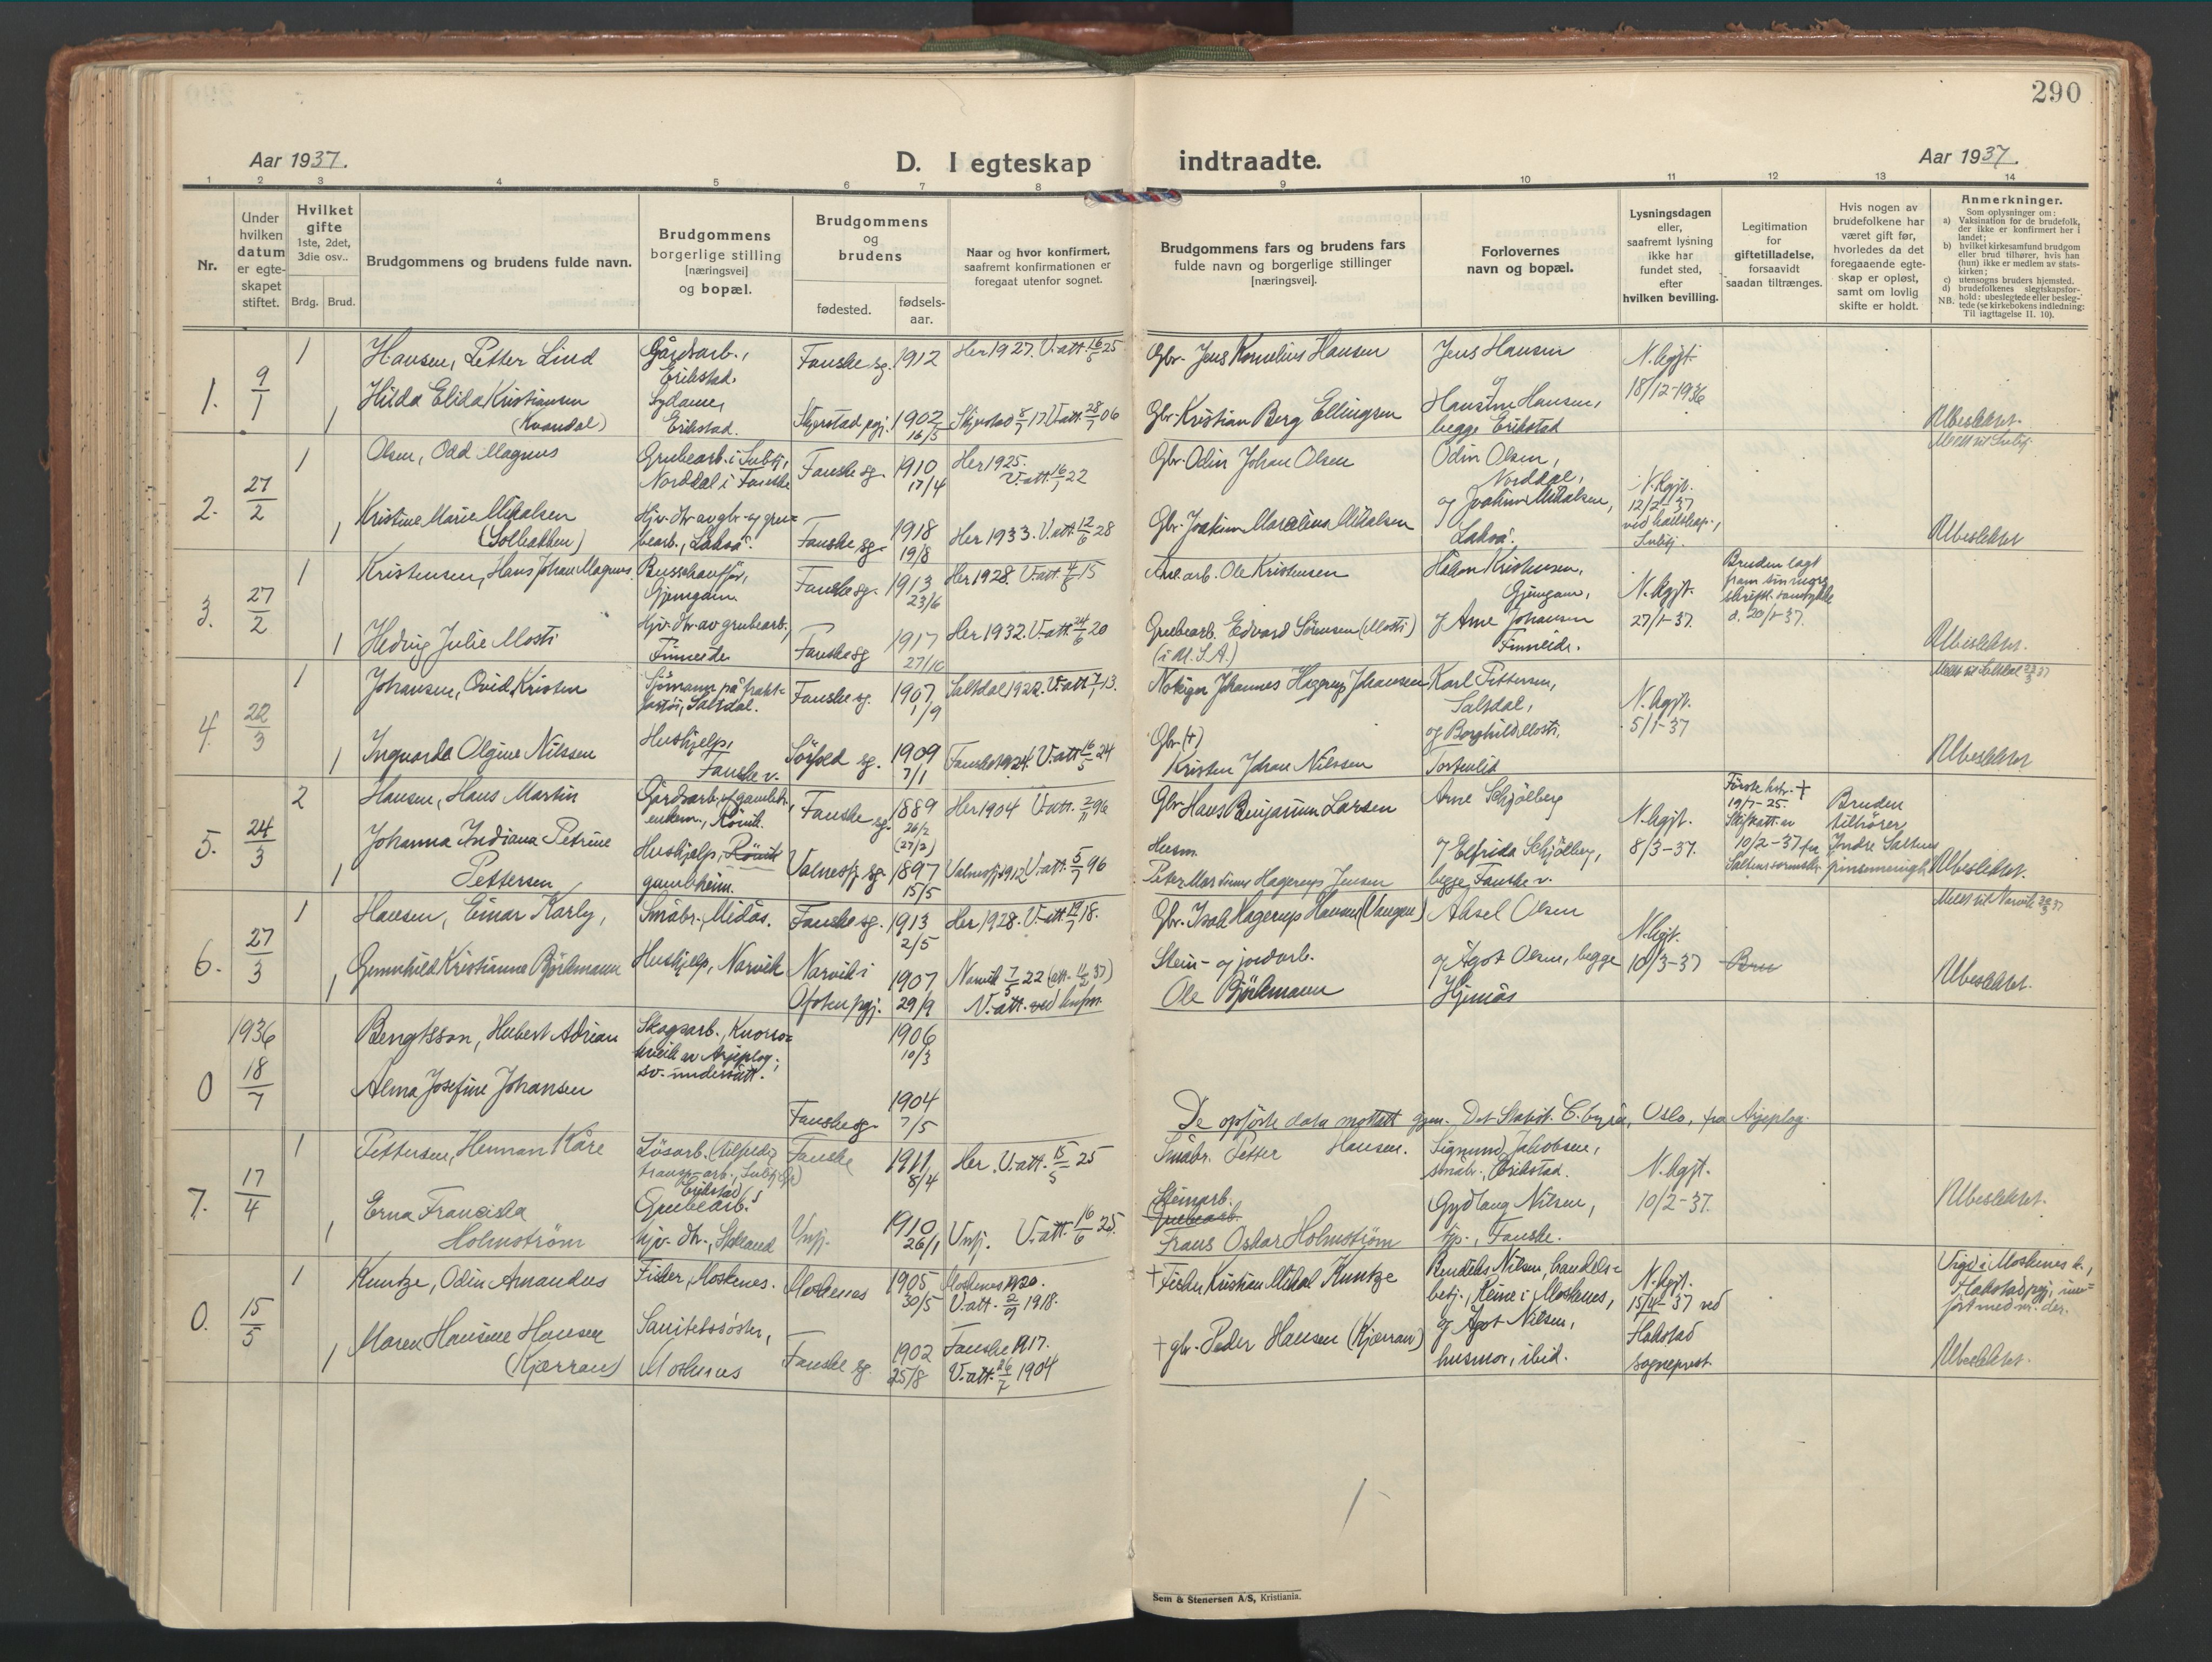 290
Aar 1937.
D. I egteskap indtraadte.
Aar 1937.
1 2 3 4 5 6 7 8 9 10 11 12 13 14
Nr.
Under hvilken datum er egte-skapet stiftet.
Hvilket gifte 1ste, 2det, 3die osv..
Brdg. Brud.
Brudgommens og brudens fulde navn.
Brudgommens borgerlige stilling [næringsvei] og bopæl.
Brudgommens og brudens
fødested.
fødsels-aar.
Naar og hvor konfirmert, saafremt konfirmationen er foregaat utenfor sognet.
Brudgommens fars og brudens fars fulde navn og borgerlige stillinger [næringsvei].
Forlovernes navn og bopæl.
Lysningsdagen eller, saafremt lysning ikke har fundet sted, efter hvilken bevilling.
Legitimation for giftetilladelse, forsaavidt saadan tiltrænges.
Hvis nogen av brudefolkene har været gift før, hvorledes da det foregaaende egte-skap er opløst, samt om lovlig skifte er holdt.
Anmerkninger.
Som oplysninger om:
a) Vaksination for de brudefolk, der ikke er konfirmert her i landet;
b) hvilket kirkesamfund brudgom eller brud tilhører, hvis han (hun) ikke er medlem av stats-kirken;
c) utensogns bruders hjemsted.
d) brudefolkenes slegtskapsfor-hold: ubeslegtede eller besleg-tede (se kirkebokens indledning:
NB. Til iagttagelse II. 10).
1. 9/1
1 Hansen, Petter Lind
Gårdsarb., Erikstad.
Fauske sg. 1912
Her 1927. V. att. 16/6 25
Gbr. Jens Kornelius Hansen
Jens Hansen
N. kgjt. 18/12-1936
1 Hilda Elida Kristiansen (Kvandal)
Sydame, Erikstad.
Skjerstad pgj. 1902 16/5
Skjerstad 8/7 17 V. att. 28/7 06
Gbr. Kristian Berg Ellingsen
og Hansine Hansen, begge Erikstad
Ubeslektet.
2. 27/2
1 Olsen, Odd Magnus
Grubearb. i Sulitj., Norddal i Fauske
Fauske sg. 1910 17/4
Her 1925. V. att. 16/1 22
Gbr. Odin Johan Olsen
Odin Olsen, Norddal,
N. kgjt. 12/2-37
Meldt til Sulitj.
1 Kristine Marie Mikalsen (Solbakken)
Hjv. dtr. av gbr. og gru=bearb., Lakså.
Fauske sg. 1918 19/8
Her 1933. V. att. 12/6 28
Gbr. Joakim Marelius Mikalsen
og Joakim Mikalsen, Lakså.
Sulitj.
Ubeslektet
3. 27/2
1 Kristensen, Hans Johan Magnus.
Busschauffør, Gjemgam.
Fauske sg. 1913 23/6
Her 1928. V. att. 4/8 15
Anl. arb. Ole Kristensen
Håkon Kristensen, Gjemgam,
N. kgjt. 27/1-37.
Bruden lagt fram sin mors skriftl. samtykke d. 20/1-37.
1 Hedvig Julie Mosti
Hjv. dtr. av grubearb., Finneide
Fauske sg 1917 27/10
Her 1932. V. att. 24/6 20
Grubearb. Edvard Sørensen (Mosti) (i U. S. A.)
og Arne Johansen Finneide.
Ubeslektet.
4. 22/3
1 Johansen, Ovid Kristen
Sjömann på frakt=fartøi, Saltdal.
Fauske sg. 1907 1/9
Saltdal 1922. V. att. 7/1 13.
Johannes Hagerup Johansen
Karl Pettersen, Saltdal,
N. kgjt. 5/1-37
Meldt til Saltdal 23/3 37
1 Ingvarda Olgine Nilssen
Hushjelp, Fauske v.
Sörfold sg. 1909 7/1
Fauske 1924. V. att. 16/5 24
Gbr. (+) Kristen Johan Nilssen
og Borghild Mosti,
Ubeslektet
5. 24/3
2 Hansen, Hans Martin
Gårdsarb. enkem., Rönvik.
Fauske sg. 1889 26/2 (27/2)
Her 1904 V. att. 2/11 96
Gbr. Hans Benjamin Larsen
Arne Schjölberg
N. kgjt. 8/3-37.
Förste hstr. + 19/7-25. Skifteatt. av 10/2-37 fra
Bruden tilhører Indre Saltens pinsemenigh.
1 Johanna Indiana Petrine Pettersen
Hushjelp, Rönvik gamleheim.
Valnesfj. sg. 1897 15/5
Valnesfj. 1912 V. att. 5/7 96
Husm. Peter Martinus Hagerup Jensen
og Elfrida Schjölberg, begge Fauske v.
Ubeslektet.
6. 27/3
1 Hansen, Einar Karly,
Småbr., Midås.
Fauske sg. 1913 2/5
Her 1928. V. att. 19/7 18.
Gbr. Isak Hagerup Hansen (Vangen)
Aksel Olsen
N. kgjt. 10/3-37
Meldt til Narvik 30/3 37
1 Gunnhild Kristianne Björkmann
Hushjelp, Narvik
Narvik i Ofoten pgj. 1907 29/9
Narvik 7/5 22 (att. 11/2 37)
Stein- og jordarb. Ole Björkmann
og Agot Olsen, begge Hjemås
Ubeslektet.
0 1936 18/7
Bengtsson, Hubert Adrian
Skogsarb., av Arjeplog; sv. undersått.
1906 10/3
Alma Josefine Johansen
Fauske sg. 1904 7/5
De opførte data mottatt gjen. Det Statist. C. byrå, Oslo, fra Arjeplog.
7. 17/4
1 Pettersen, Herman Kåre
Lösarb. Erikstad
Fauske 1911 8/4
Her. V. att. 15/5 25
Småbr. Petter Hansen.
Sigmund Jakobsen, småbr., Erikstad.
N. kgjt. 10/2-37.
1 Erna Franciska Holmström
Grubearb.s hjv. dtr.,
Vnfj. 1910 26/1
Vnfj. V. att. 16/6 25.
Steinarb. Grubearb. Frans Oskar Holmström
Gydlaug Nilsen, tjp., Fauske.
Ubeslektet.
0. 15/5
1 Kuntze, Odin Amandus
Fisker, Moskenes.
Moskenes 1905 30/5
Moskenes 1920. V. att. 2/9 1918.
+ Fisker Kristian Mikal Kuntze
Bendiks Nilsen, handels=betj., Reine i Moskenes,
N. kgjt. 15/4-37 ved Flakstad sogneprest
Vigd i Moskenes k., Flakstad pgj., inn=ført med nr. der.
1 Maren Hansine Hansen (Kjærran)
Sanitetssöster, Moskenes
Fauske sg. 1902 25/8
Fauske 1917. V. att. 26/7 1904
+ gbr. Peder Hansen (Kjærran)
og Agot Nilsen, husmor, ibid.
Ubeslektet.
Sem & Stenersen A/S, Kristiania.